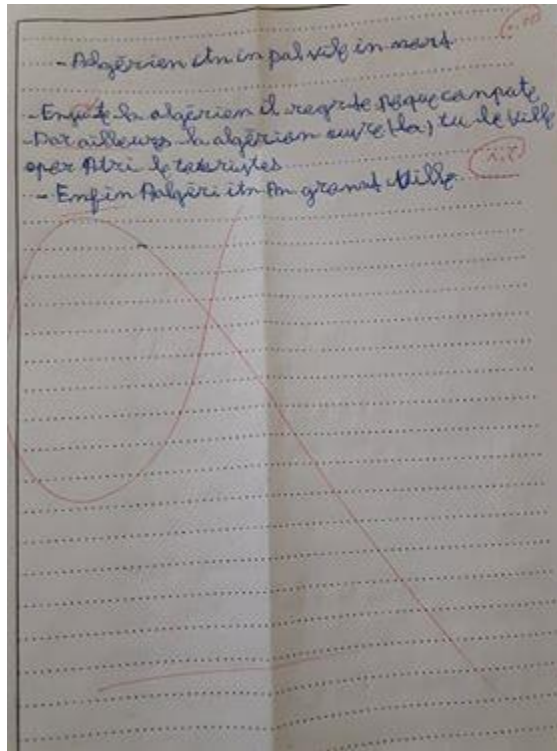 - Algérien itn in pal vile in mort
- Enjute la algérien il regrte pique canpate
- Par ailleurs la algérien ouvre (la) tu le ville
oper Atri le tetoristes
- Enfin Aalgéri itn An granat ville